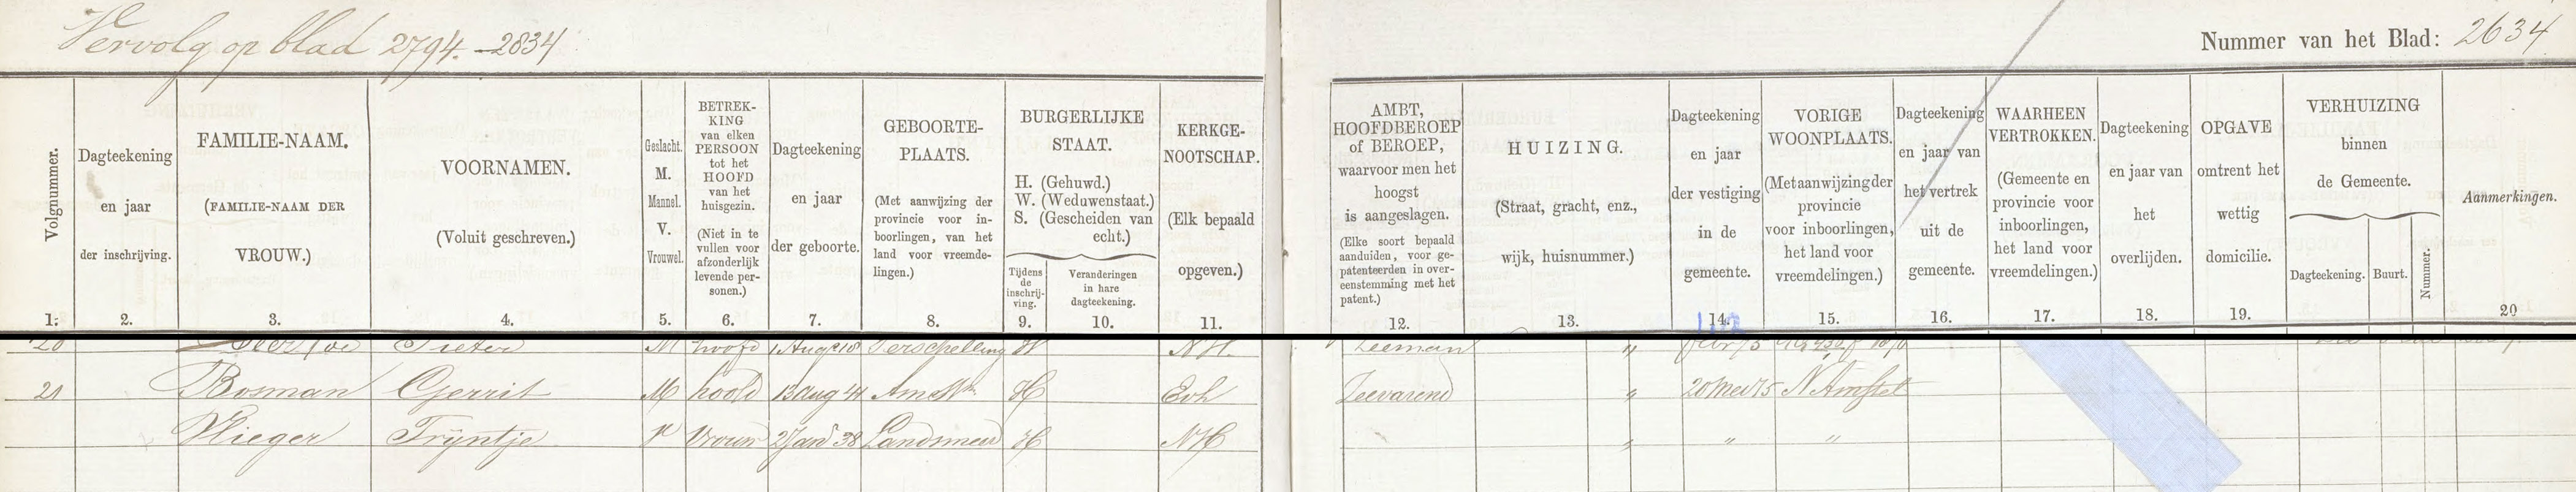 Vervolg op blad 2794.-2834
Nummer van het Blad: 2634
Volgnummer.
1.
Dagteekening
en jaar
der inschrijving.
2.
FAMILIE-NAAM.
(FAMILIE-NAAM DER
VROUW.)
3.
VOORNAMEN.
(Voluit geschreven.)
4.
Geslacht.
M.
Mannel.
V.
Vrouwel.
5.
BETREK-
KING
van elken
PERSOON
tot het
HOOFD
van het
huisgezin.
(Niet in te
vullen voor
afzonderlijk
levende per-
sonen.)
6.
Dagteekening
en jaar
der geboorte.
7.
GEBOORTE-
PLAATS.
(Met aanwijzing der
provincie voor in-
boorlingen, van het
land voor vreemde-
lingen.)
8.
BURGERLIJKE
STAAT.
H. (Gehuwd.)
W. (Weduwenstaat.)
S. (Gescheiden van
echt.)
Tijdens
de
inschrij-
ving.
9.
Veranderingen
in hare
dagteekening.
10.
KERKGE-
NOOTSCHAP.
(Elk bepaald
opgeven.)
11.
AMBT,
HOOFDBEROEP
of BEROEP,
waarvoor men het
hoogst
is aangeslagen.
(Elke soort bepaald
aanduiden, voor ge-
patenteerden in over-
eenstemming met het
patent.)
12.
HUIZING.
(Straat, gracht, enz.,
wijk, huisnummer.)
13.
Dagteekening
en jaar
der vestiging
in de
gemeente.
14.
VORIGE
WOONPLAATS.
(Met aanwijzing der
provincie
voor inboorlingen,
het land voor
vreemdelingen.)
15.
Dagteekening
en jaar van
het vertrek
uit de
gemeente.
16.
WAARHEEN
VERTROKKEN.
(Gemeente en
provincie voor
inboorlingen,
het land voor
vreemdelingen.)
17.
Dagteekening
en jaar van
het
overlijden.
18.
OPGAVE
omtrent het
wettig
domicilie.
19.
VERHUIZING
binnen
de Gemeente.
Dagteekening. Buurt. Nummer.
Aanmerkingen.
20
20 Pieter M hoofd 1 Aug 18 Terschelling N.H. Zeeman "
21 Bosman Gerrit M hoofd 13 Aug 44 Amstd H Evl Zeevarend " 20 Mei 75 N Amstel
Vlieger Trijntje V Vrouw 2 Jan 38 Landsmeer H NH " " "